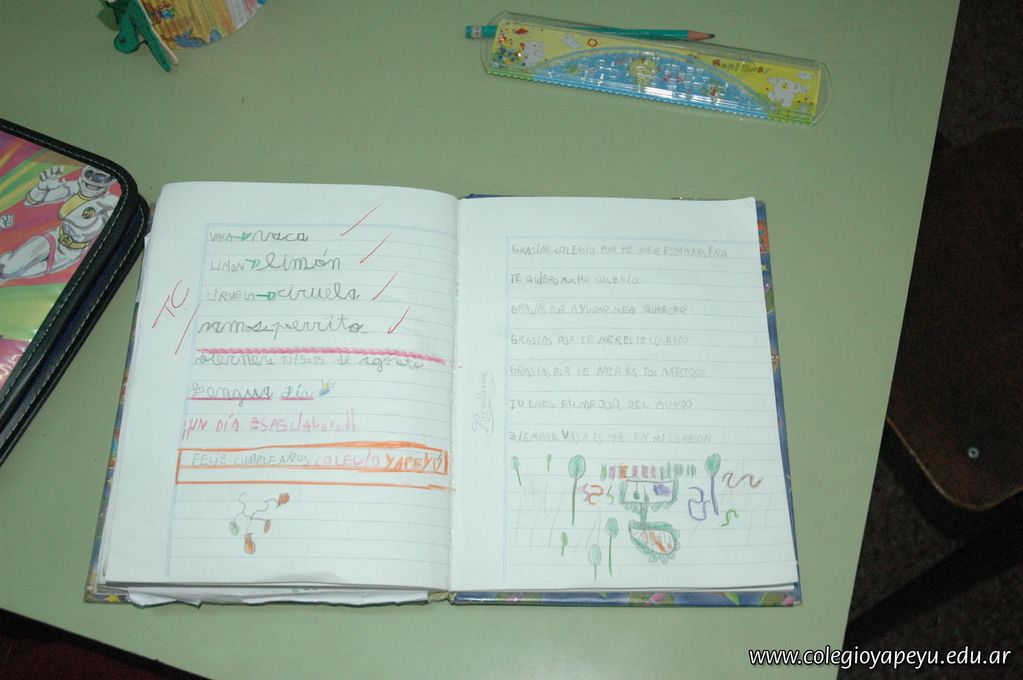 VACA → vaca
LIMON → limón
CIRUELA → ciruela
vamos perrito
T.C.
viernes de agosto
Lengua día
¡¡UN DÍA ESPECIAL!!
FELIZ CUMPLEAÑOS COLEGIO YAPEYÚ
GRASIAS COLEGIO POR TE NER ESTA MAESTRA
TE QUIERO MUCHO COLEGIO
GRASIAS POR AYUDAR MEA
GRASIAS POR TE NER ESTE COLEGIO
GRASIAS POR TE NER ES TOS MAESTROS
TU ERES EL MEJOR DEL MUNDO
SIEMPRE VAS A ES TAR EN MI CORASON
www.colegioyapeyu.edu.ar